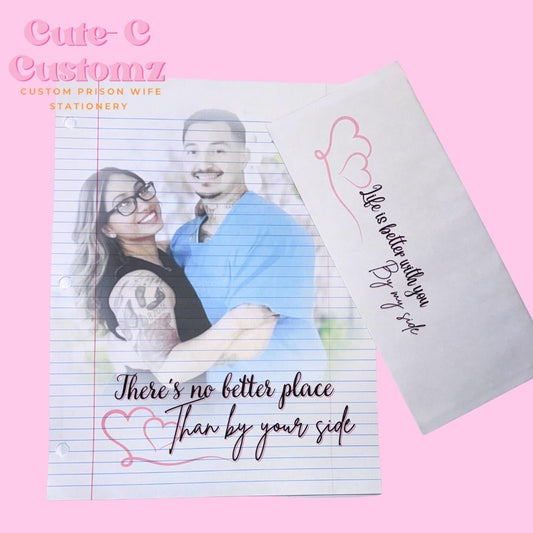 Cute- C
Customz
CUSTOM PRISON WIFE
STATIONERY
There's no better place
Than by your side
Life is better with you
By my side